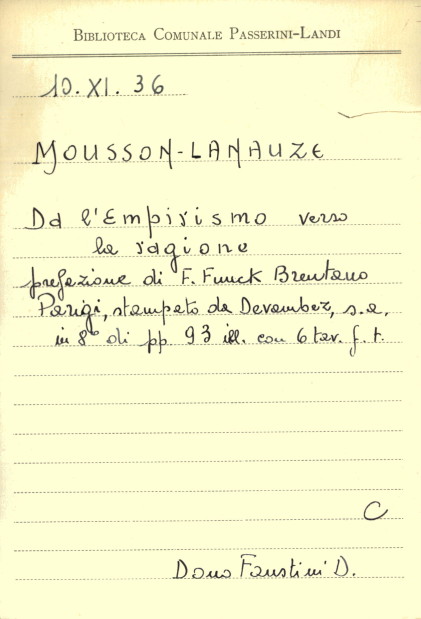 BIBLIOTECA COMUNALE PASSERINI-LANDI
10.XI.36
MOUSSON-LANAUZE
Da l'Empirismo verso
la ragione
prefazione di F. Funck Brentano
Parigi, stampato da Devambez, s.a.
in 8° di pp. 93 ill. con 6 tav. f. t.
C
Dono Faustini D.